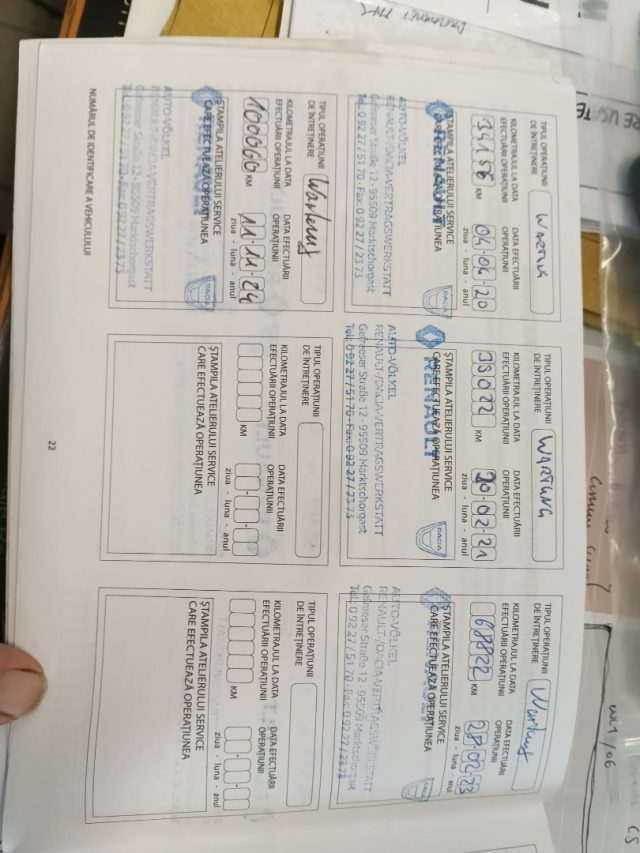 TIPUL OPERAȚIUNII
DE ÎNTREȚINERE
WARTUNG
KILOMETRAJUL LA DATA
EFECTUĂRII OPERAȚIUNII
KM
DATA EFECTUĂRII
OPERAȚIUNII
04 04 20
ziua - luna - anul
ȘTAMPILA ATELIERULUI SERVICE
CARE EFECTUEAZĂ OPERAȚIUNEA
RENAULT
DACIA
AUTO-VÖLKEL
RENAULT-/DACIA-VERTRAGSWERKSTATT
Gefreeser Straße 12 - 95509 Marktschorgast
Tel. 0 92 27 / 51 70 - Fax: 0 92 27 / 23 73
TIPUL OPERAȚIUNII
DE ÎNTREȚINERE
WARTUNG
KILOMETRAJUL LA DATA
EFECTUĂRII OPERAȚIUNII
KM
DATA EFECTUĂRII
OPERAȚIUNII
20 02 21
ziua - luna - anul
ȘTAMPILA ATELIERULUI SERVICE
CARE EFECTUEAZĂ OPERAȚIUNEA
RENAULT
DACIA
AUTO-VÖLKEL
RENAULT-/DACIA-VERTRAGSWERKSTATT
Gefreeser Straße 12 - 95509 Marktschorgast
Tel. 0 92 27 / 51 70 - Fax: 0 92 27 / 23 73
TIPUL OPERAȚIUNII
DE ÎNTREȚINERE
Wartung
KILOMETRAJUL LA DATA
EFECTUĂRII OPERAȚIUNII
68822 KM
DATA EFECTUĂRII
OPERAȚIUNII
ziua - luna - anul
ȘTAMPILA ATELIERULUI SERVICE
CARE EFECTUEAZĂ OPERAȚIUNEA
DACIA
AUTO-VÖLKEL
RENAULT-/DACIA-VERTRAGSWERKSTATT
Gefreeser Straße 12 - 95509 Marktschorgast
Tel. 0 92 27 / 51 70 - Fax: 0 92 27 / 23 73
TIPUL OPERAȚIUNII
DE ÎNTREȚINERE
Wartung
KILOMETRAJUL LA DATA
EFECTUĂRII OPERAȚIUNII
100060 KM
DATA EFECTUĂRII
OPERAȚIUNII
11 11 24
ziua - luna - anul
ȘTAMPILA ATELIERULUI SERVICE
CARE EFECTUEAZĂ OPERAȚIUNEA
RENAULT
DACIA
AUTO-VÖLKEL
RENAULT-/DACIA-VERTRAGSWERKSTATT
Gefreeser Straße 12 - 95509 Marktschorgast
Tel. 0 92 27 / 51 70 - Fax: 0 92 27 / 23 73
TIPUL OPERAȚIUNII
DE ÎNTREȚINERE
KILOMETRAJUL LA DATA
EFECTUĂRII OPERAȚIUNII
KM
DATA EFECTUĂRII
OPERAȚIUNII
ziua - luna - anul
ȘTAMPILA ATELIERULUI SERVICE
CARE EFECTUEAZĂ OPERAȚIUNEA
TIPUL OPERAȚIUNII
DE ÎNTREȚINERE
KILOMETRAJUL LA DATA
EFECTUĂRII OPERAȚIUNII
KM
DATA EFECTUĂRII
OPERAȚIUNII
ziua - luna - anul
ȘTAMPILA ATELIERULUI SERVICE
CARE EFECTUEAZĂ OPERAȚIUNEA
NUMĂRUL DE IDENTIFICARE A VEHICULULUI
22